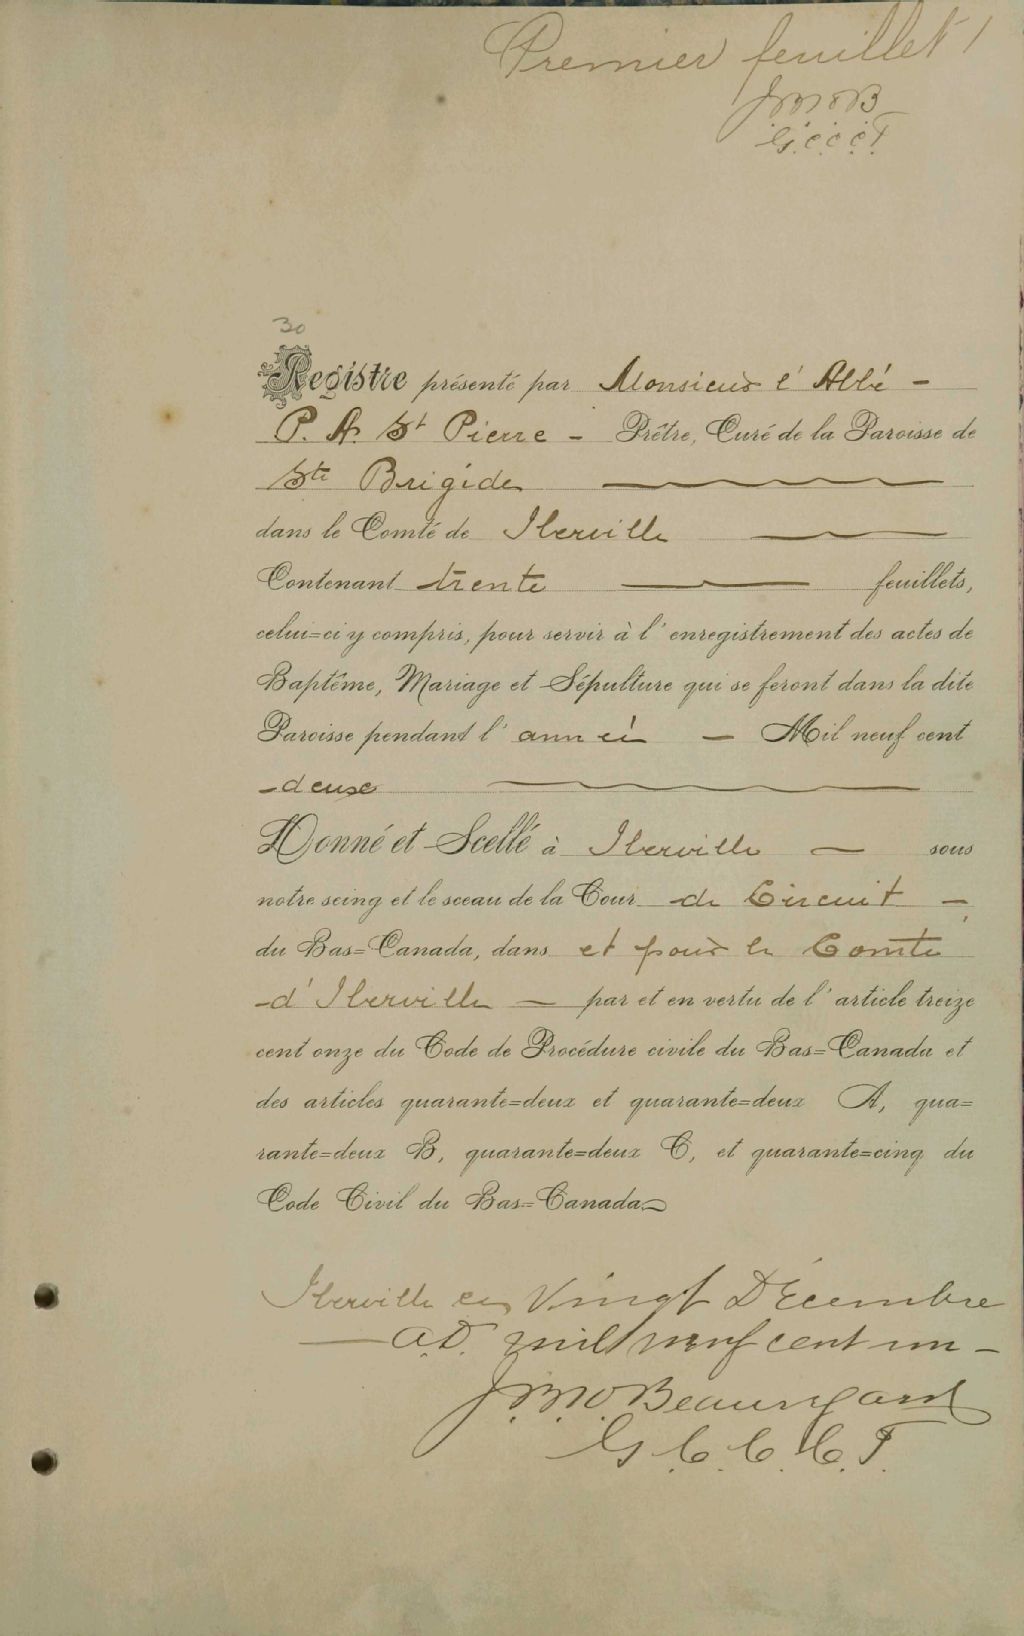 Premier feuillet 1
JBMOB
G.C.C.C.T.
30
Registre présenté par Monsieur l'Abbé -
P. A. St Pierre - Prêtre, Curé de la Paroisse de
Ste Brigide
dans le Comté de Iberville
Contenant trente feuillets,
celui=ci y compris, pour servir à l'enregistrement des actes de
Baptême, Mariage et Sépulture qui se feront dans la dite
Paroisse pendant l'année - Mil neuf cent
-deux
Donné et Scellé à Iberville - sous
notre seing et le sceau de la Cour de Circuit -
du Bas=Canada, dans et pour le Comté
-d'Iberville - par et en vertu de l'article treize
cent onze du Code de Procédure civile du Bas=Canada et
des articles quarante=deux et quarante=deux A, qua=
rante=deux B, quarante=deux C, et quarante=cinq du
Code Civil du Bas=Canada
Iberville ce Vingt Décembre
A.D. mil neuf cent un -
Beauregard
G.C.C.C.T.